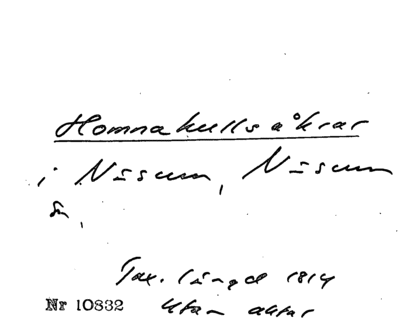 Homnakullsåkrar
i Näsum, Näsum
sn,
Tax. längd 1814
Nr 10832 utan aktar